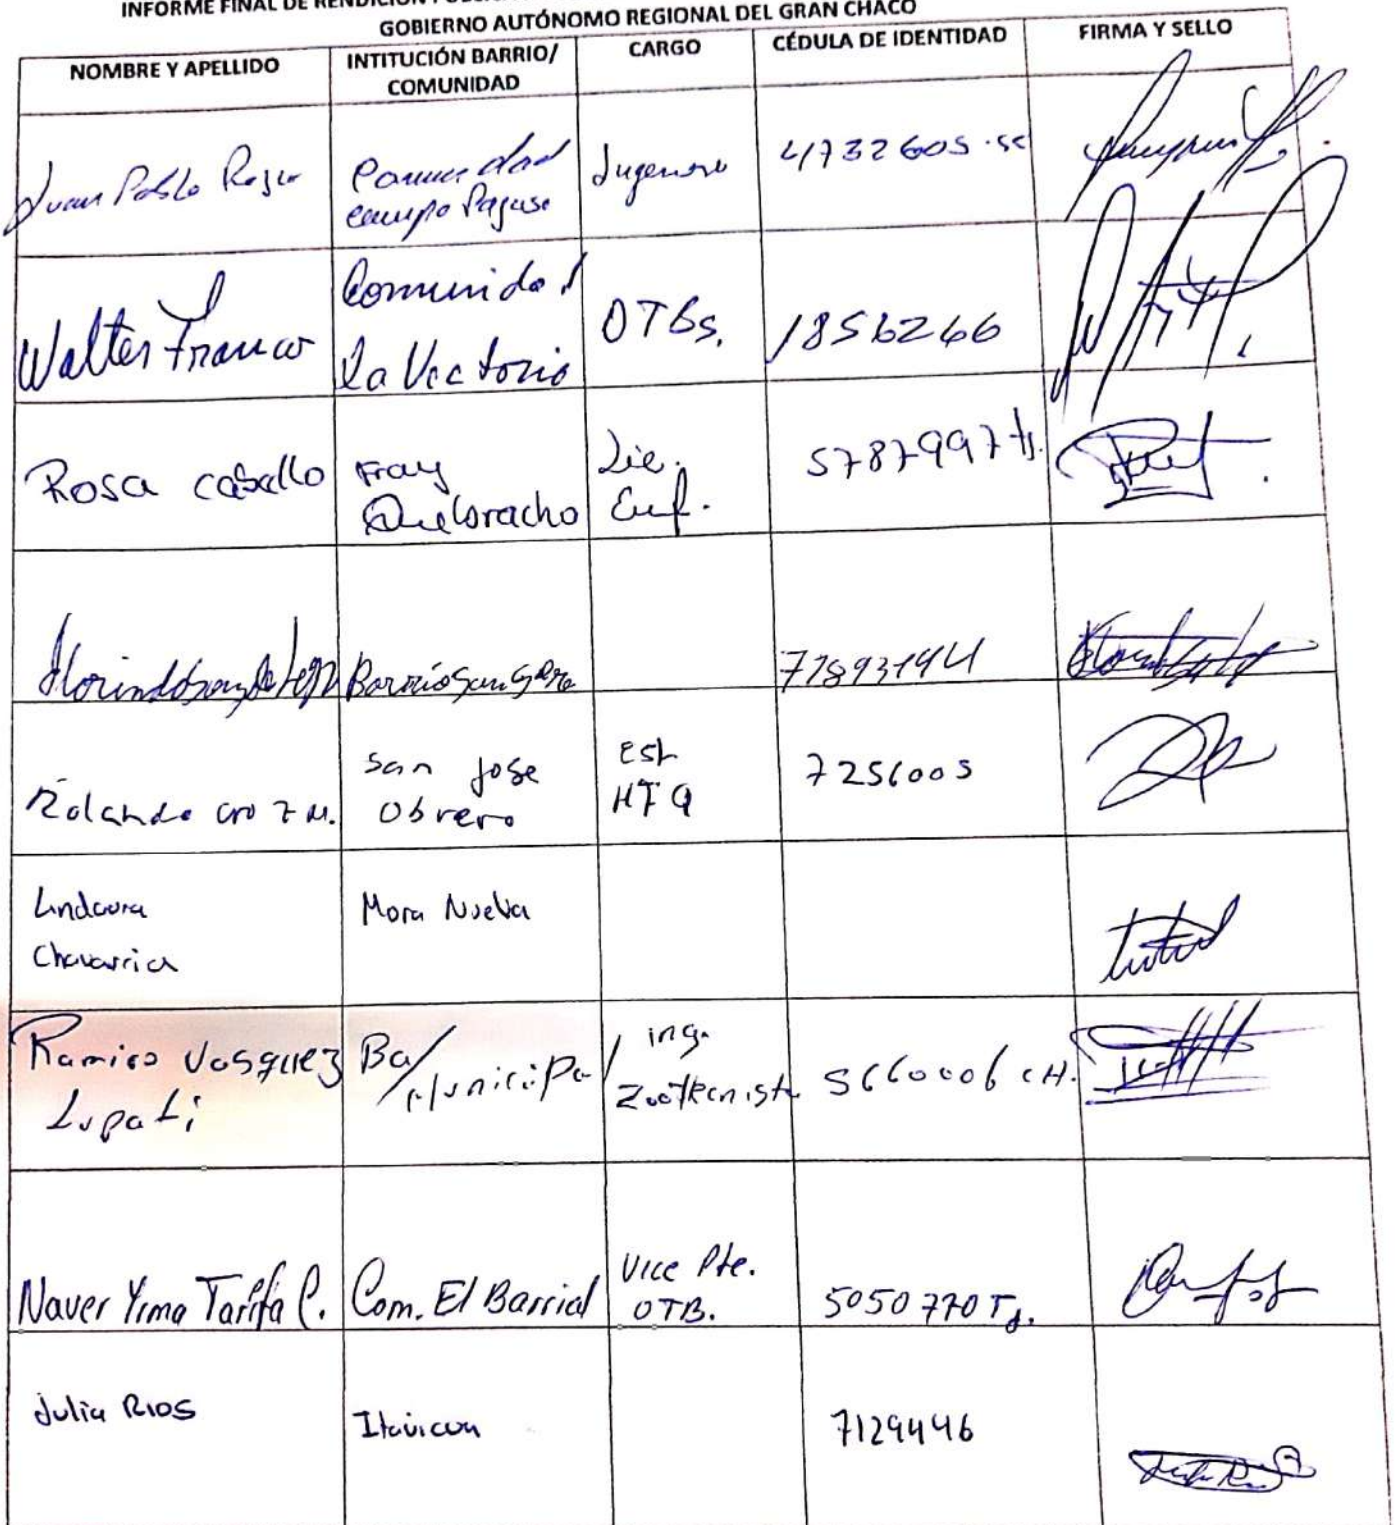 INFORME FINAL DE RENDICIÓN
GOBIERNO AUTÓNOMO REGIONAL DEL GRAN CHACO
NOMBRE Y APELLIDO
INTITUCIÓN BARRIO/
COMUNIDAD
CARGO
CÉDULA DE IDENTIDAD
FIRMA Y SELLO
Juan Pablo
Comunidad
campo
Ingeniero
4732605 sc
Walter Franco
Comunidad
La Victoria
OTBs.
1856266
Rosa caballo
Fray
Quebracho
Lic.
Enf.
5787997 tj.
Barrio
Rolando
san jose
Obrero
Est
7256005
Lindaura
Chavarria
Mora Nueva
Ramiro Vasquez
Lupati
Ba/
Municipa
ing.
Zootecnista
5660006 CH.
Naver Yima Tarifa C.
Com. El Barrial
Vice Pte.
OTB.
5050770 Tj.
Julia Rios
Itavicua
7129446